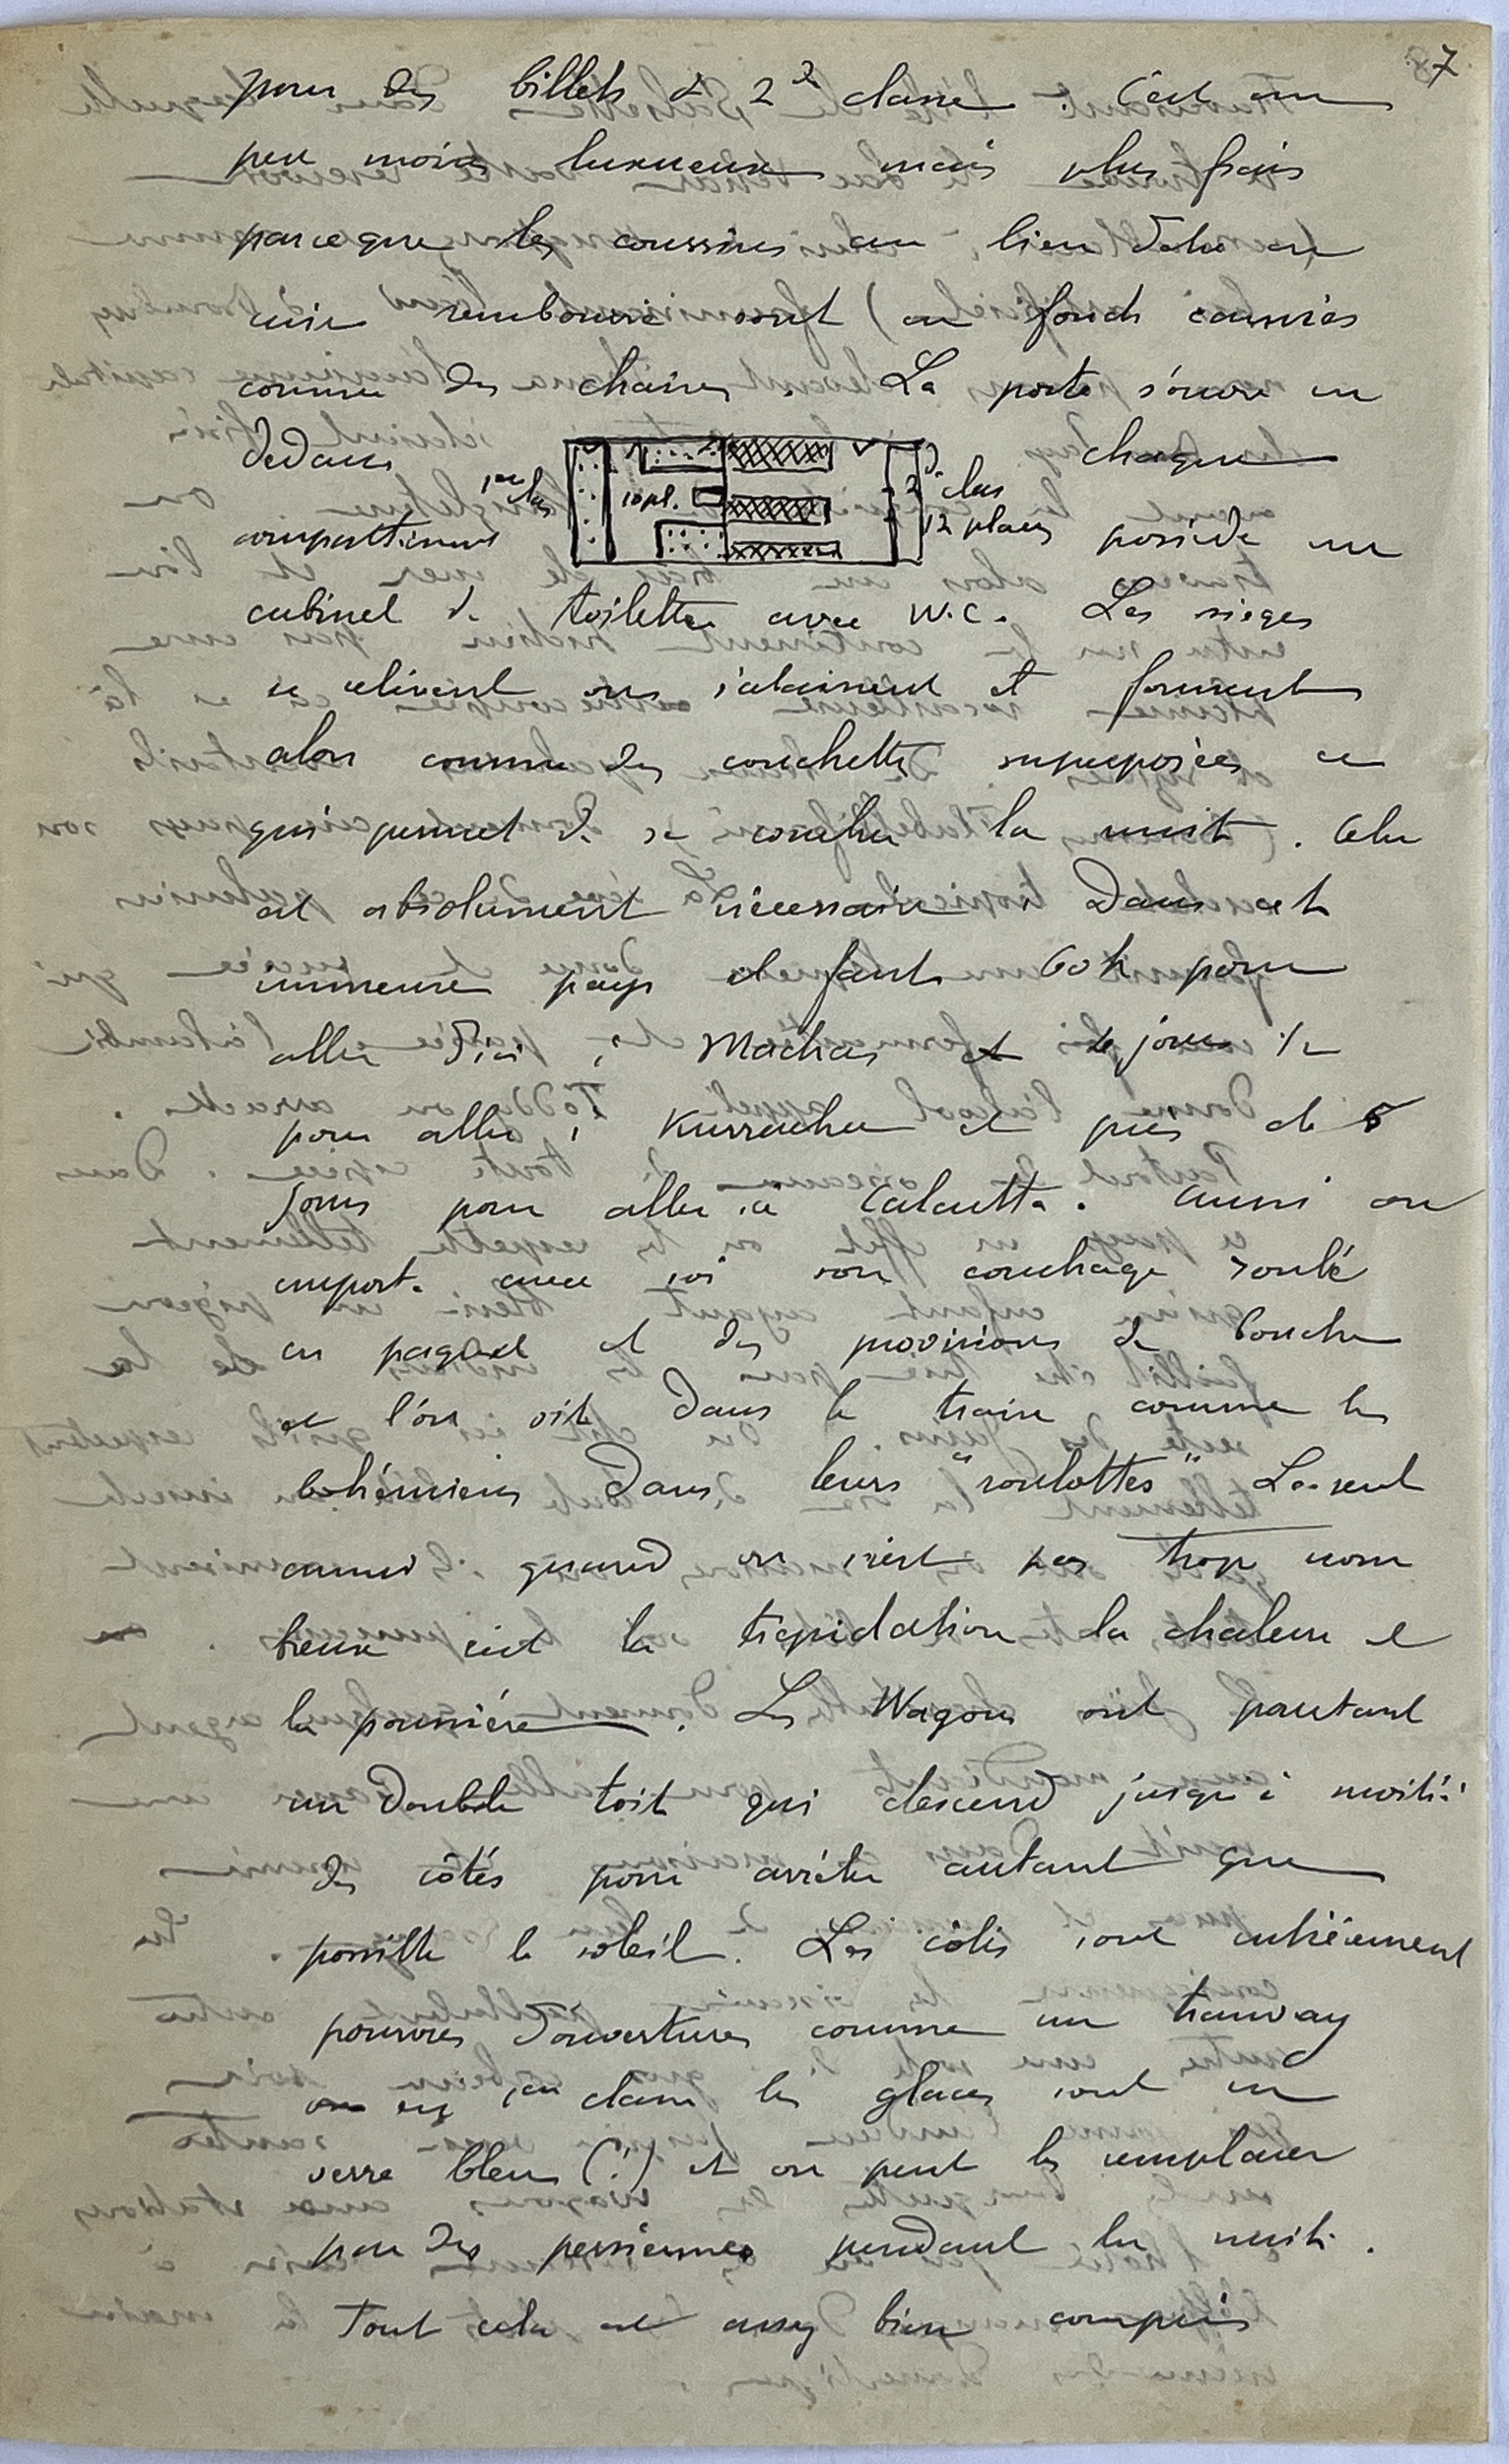 7
pour des billets de 2e classe. C'est un
peu moins luxueux mais plus frais
parceque les coussins au lieu d'etre en
cuir rembourré sont) au fonds cannés
comme des chaises. La porte s'ouvre en
dedans chaque
1ere clas 10 pl. 2e clas
12 places
compartiment possède un
cabinet de toilette avec W.C. Les sièges
se relèvent ou s'abaissent et forment
alors comme des couchettes superposées ce
qui permet de se coucher la nuit. Cela
est absolument nécessaire. Dans cet
immense pays il faut 60 h pour
aller d'ici à Madras et jours 1/2
pour aller à Kurrachee et près de 5
jours pour aller à Calcutta. Aussi on
emporte avec soi son couchage roulé
en paquet et des provisions de bouche
et l'on vit dans le train comme les
bohémiens dans leurs "roulottes" Le seul
ennui quand on n'est pas trop nom
breux c'est la trépidation la chaleur et
la poussière. Les Wagons ont pourtant
un double toit qui descend jusqu'à moitié
des côtés pour arrêter autant que
possible le soleil. Les côtés sont entièrement
pourvus d'ouvertures comme un tramway
en 1ere classe les glaces sont en
verre bleu (!) et on peut les remplacer
par des persiennes pendant la nuit.
Tout cela est assez bien compris